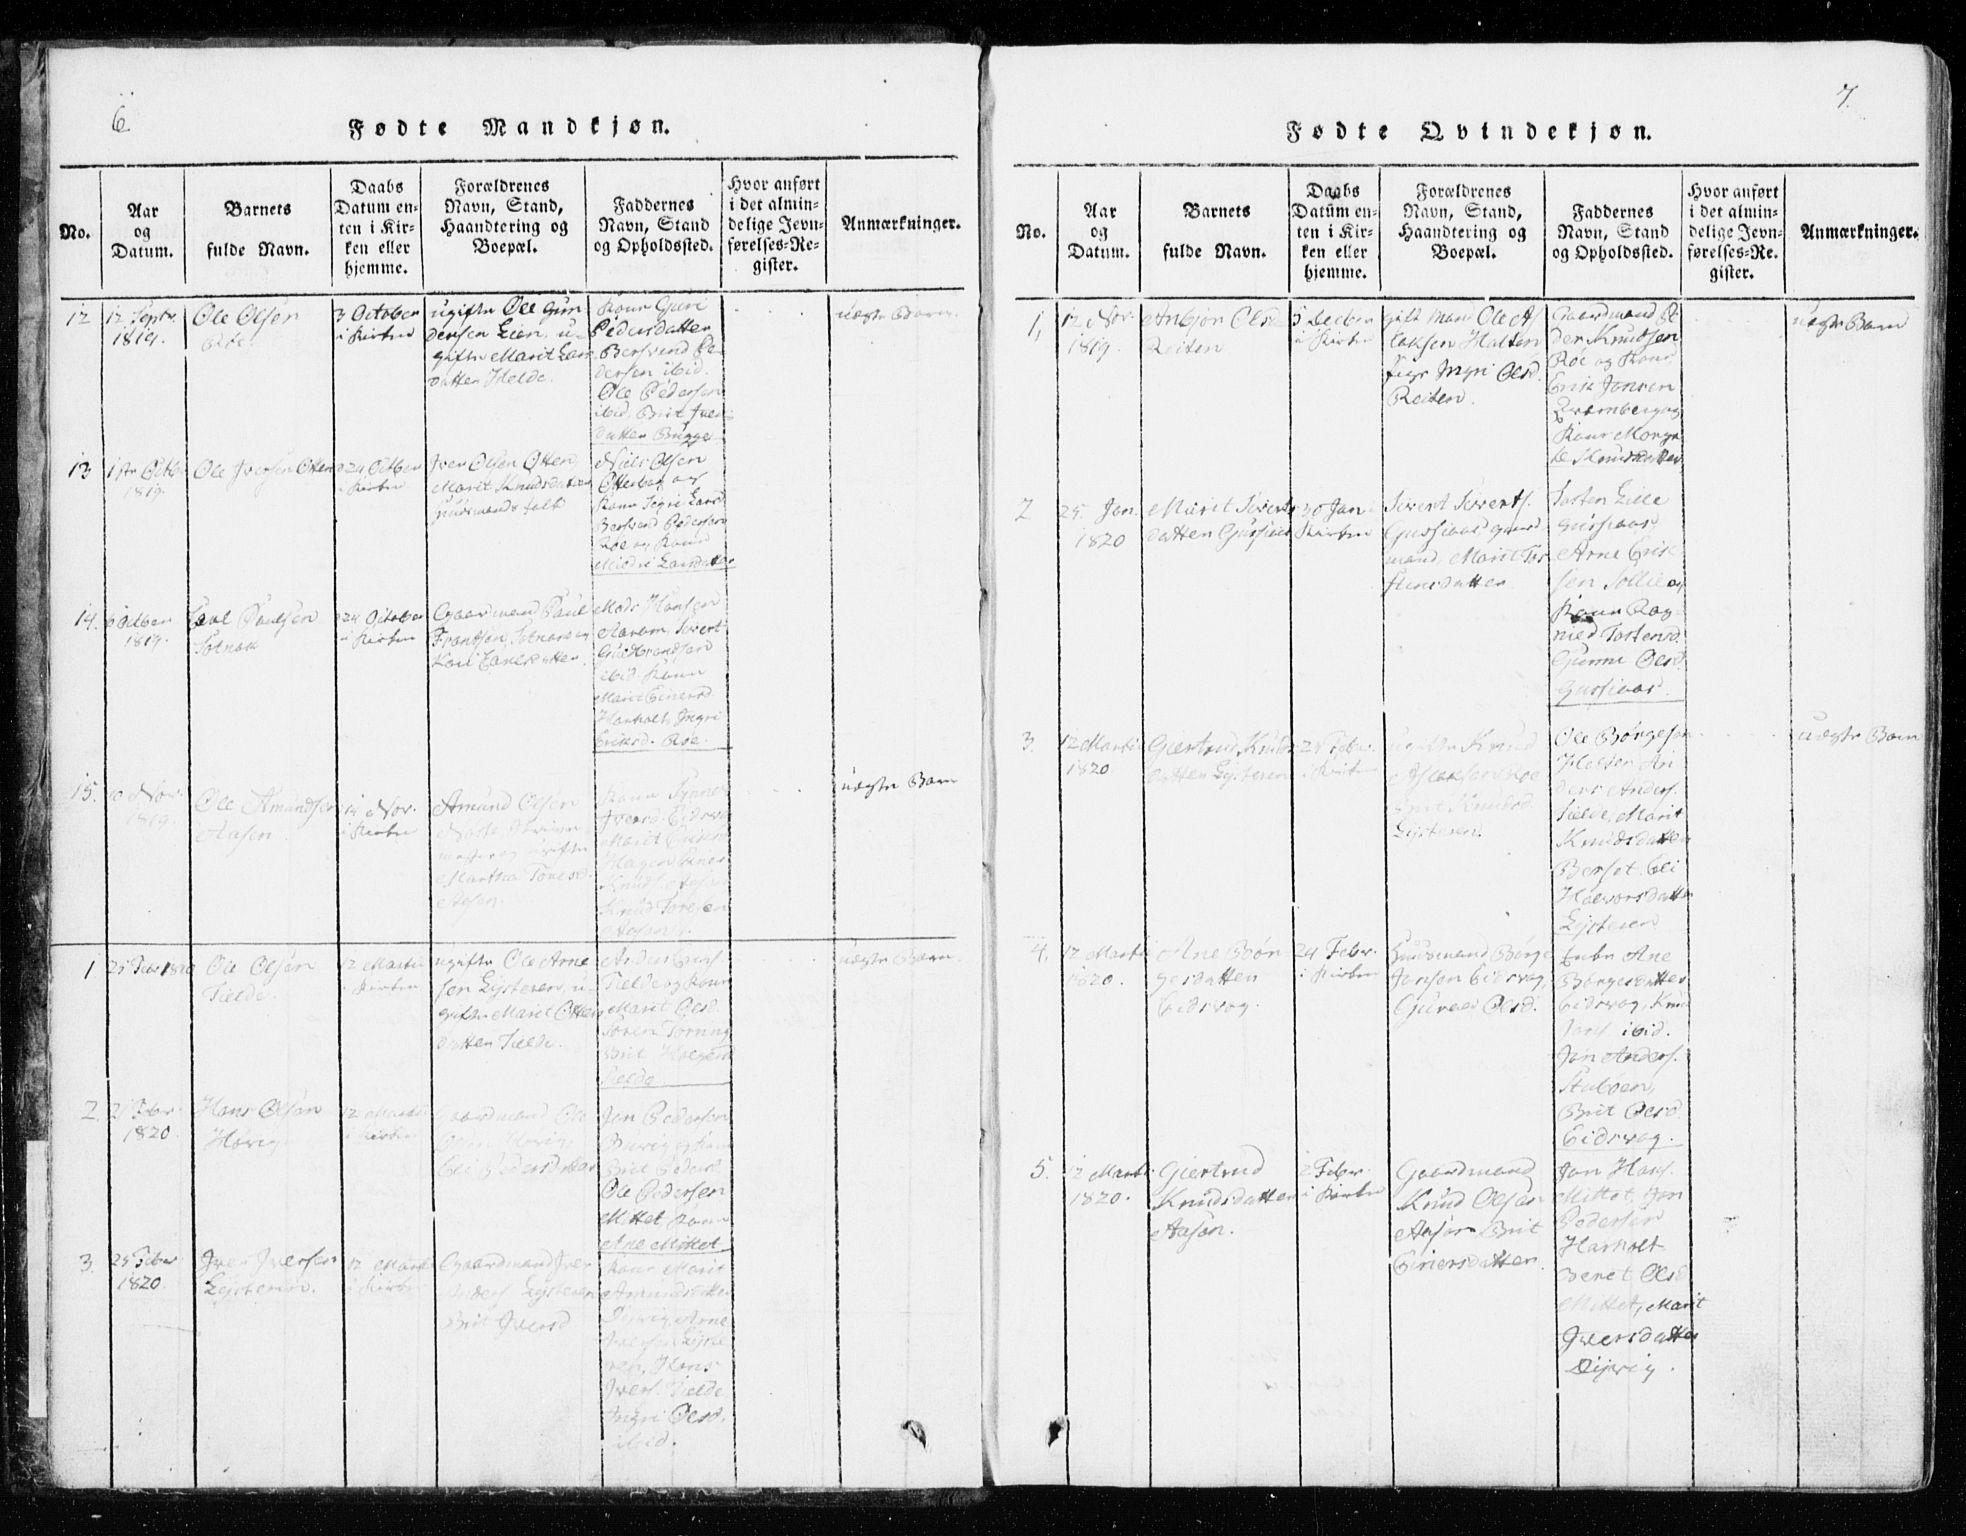 6.
Fødte Mandkjøn.
No.
Aar
og
Datum.
Barnets
fulde Navn.
Daabs
Datum en-
ten i Kir-
ken eller
hjemme.
Forældrenes
Navn, Stand,
Haandtering og
Boepæl.
Faddernes
Navn, Stand
og Opholdssted.
Hvor anført
i det almin-
delige Jevn-
førelses-Re-
gister.
Anmærkninger.
12
12 Septr.
1819.
Ole Olsen
3 October
i Kirken
ugifte Ole Gun
dersen Eien, u-
gifte Marit Lars
datter Helde.
Kone Guri
Pedersdatter
Bersvend Pe-
dersen ibid.
Ole Pedersen
ibid, Brit Iver
datter Bugge
uægte Barn
13
1819.
Ole Iversen Otten
24 Octber
i Kirken
Iver Olsen Otten,
Marit Knudsdatter
Huusmands folk
Niels Olsen
Kone Segri Larsd
Bersvend Pedersen
Roe og Kone
14.
6 Octber
1819.
Paul Paulsen
Sotnak
24 October
i Kirken
Gaardmand Paul
Frantsen, Sotnak og
Kari
Mads Hansen
Sivert
Gudbrandsen
ibid. Kone
Marit Einersd
Harholt, Ingri
Eriksd. Roe.
15.
10 Nov.
1819.
Ole Amundsen
Aasen
14 Nov.
i Kirken
Amund Olsen
Martha Toresd.
Aasen.
Kone Synnev
Iversd. Eidsvog
Marit
Hagen Einer
Knuds. Aasen
Knud Toresen
Aasen.
uægte Barn
1
25 Febr 1820
Ole Olsen
Tielde.
12 Martii
i Kirken
ugifte Ole Arne
sen Lysteren, u-
gifte Marit Otters
datter Tielde.
Anders
Tielde og Kone
Marit Olsd.
Søren Torning
Brit Holgersd
Tielde
uægte Barn.
2
Febr.
1820.
Hans Olsen
Hovig
12 Martii
i Kirken
Gaardmand Ole
Olsen Hovig,
Eli Pedersdatter
Jon Pedersen
Brit Pedersd
Ole Pedersen
Mittet, Kone
Ane Mittet
3.
25 Febr
1820.
Iver Iversen
Lysteren.
12 Martii
i Kirken
Gaardmand Iver
Anders. Lysteren
Brit Iversd
Kone Marit
Amundsdatter
Dijrvig, Arne
Iversen Lyste
ren, Hans
Ivers. Tielde
Ingri Olsd.
ibid.
7.
Fødte Qvindekjøn.
No.
Aar
og
Datum.
Barnets
fulde Navn.
Daabs
Datum en-
ten i Kir-
ken eller
hjemme.
Forældrenes
Navn, Stand,
Haandtering og
Boepæl.
Faddernes
Navn, Stand
og Opholdssted.
Hvor anført
i det almin-
delige Jevn-
førelses-Re-
gister.
Anmærkninger.
1,
12 Nov.
1819.
Anbjør Olsd
Reiten
5 Decber
i Kirken
gift Mand Ole As
laksen Halten
Pige Ingri Olsd.
Reiten.
Gaardmand Pe
der Knudsen
Roe og Kone,
Erik Jonsen
Kone Margre
te Knudsdatter
uægte Barn
2
25. Jan.
1820
Marit Siverts
datten Gussiaas
30 Jan
i Kirken
Sivert Siverts.
Gussiaas, gaard
mand, Marit Tor
stensdatter
Tosten Lille
gussiaas,
Arne Erik
sen Sollie og
Kone Rag
nild Tostensd.
Gunni Olsd.
Gussiaas.
3.
12 Martii
1820.
Giertrud Knuds
datter Lysteren
25 Febr.
i Kirken
ugifte Knud
Aslaksen Roe
Brit Knudsd.
Lysteren.
Ole Børgesen
ders Anders.
Tielde, Marit
Knudsdatter
Berset. Eli
Halvorsdatter
Lysteren
uægte Barn
4.
12 Martii
1820.
Ane Bør
gesdatter
Eidsvog.
24 Febr.
i Kirken
Huusmand Børge
Jonsen Eidsvog,
Guroe Olsd.
Enke Ane
Børgesdatter
Eidsvog, Knud
Jons. ibid.
Jon Anders.
Stuboen,
Brit Olsd
Eidsvog.
5.
12 Martii
1820.
Giertrud
Knudsdatter
Aasen.
2 Febr.
i Kirken
Gaardmand
Knud Olsen
Aasen Brit
Einersdatter.
Jon Hans.
Mittet, Jon
Pedersen
Harholt
Beret Olsd
Mittet, Marit
Iversdatter
Dijrvig.